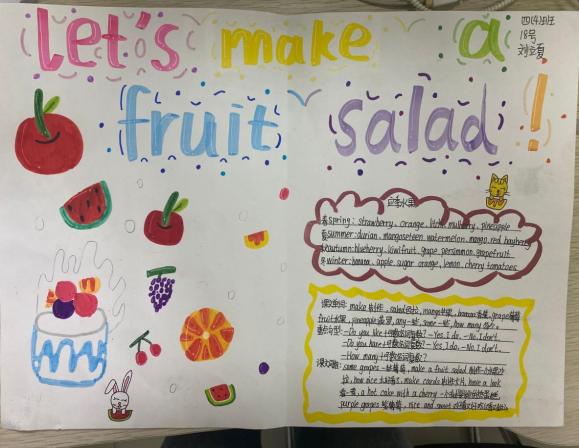 Let's make a
四(4)班
18号
fruit salad!
应季水果
春spring: strawberry, orange, mulberry, pineapple
summer: durian, mangosteen, watermelon, mango, red bayberry
autumn: blueberry, kiwifruit, grape, persimmon, grapefruit
冬winter: banana, apple, sugar orange, lemon, cherry tomatoes
make 制作, salad 沙拉, mango 芒果, banana 香蕉, grape 葡萄
fruit 水果, pineapple 菠萝, any 一些, some 一些, how many 多少
重点句型: -Do you like + 可数名词复数? -Yes, I do. -No, I don't.
-Do you have + 可数名词复数? -Yes, I do. -No, I don't.
-How many + 可数名词复数?
some grapes 一些葡萄, make a fruit salad 制作一个水果沙
拉, how nice 太好了, make cards 制作卡片, have a look
看一看, a hot cake with a cherry
purple grapes 紫葡萄, nice and sweet